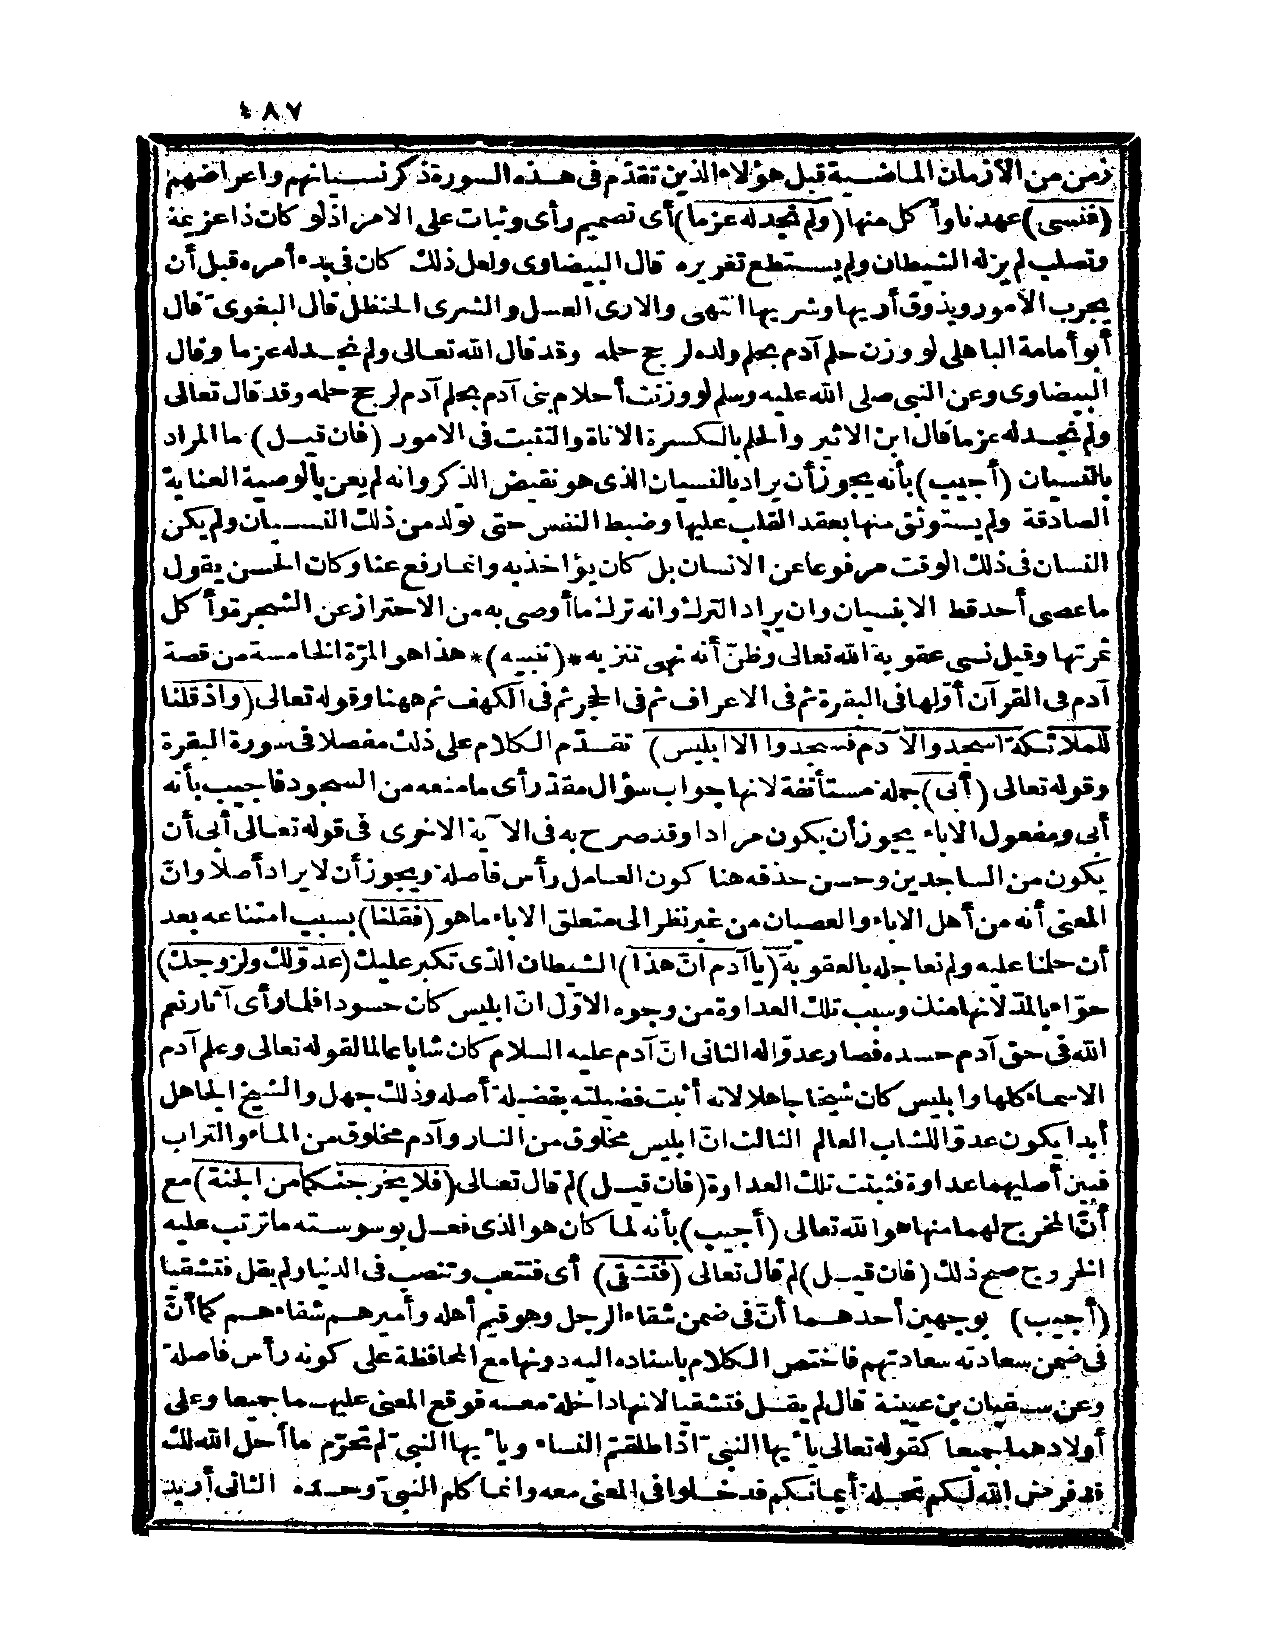 ٤٨٧
زمن من الأزمان الماضية قبل هؤلاء الذين تقدّم فى هذه السورة ذكر نسيانهم واعراضهم
(فنسى) عهدنا وأكل منها (ولم نجد له عزما) أى تصميم رأى وثبات على الامر اذ لو كان ذا عزيمة
وتصلب لم يزله الشيطان ولم يستطع تغريره قال البيضاوى ولعل ذلك كان فى بدء أمره قبل أن
يجرب الأمور ويذوق أريها وشريها انتهى والارى العسل والشرى الحنظل قال البغوىّ قال
أبو أمامة الباهلى لو وزن حلم آدم بحلم ولده لرجح حلمه وقد قال الله تعالى ولم نجد له عزما وقال
البيضاوى وعن النبى صلى الله عليه وسلم لو وزنت أحلام بنى آدم بحلم آدم لرجح حلمه وقد قال تعالى
ولم نجد له عزما قال ابن الاثير والحلم بالكسرة الاناة والتثبت فى الامور (فان قيل) ما المراد
بالنسيان (أجيب) بأنه يجوز أن يراد بالنسيان الذى هو نقيض الذكر وانه لم يعن بالوصية العناية
الصادقة ولم يستوثق منها بعقد القلب عليها وضبط النفس حتى تولد من ذلك النسيان ولم يكن
النسان فى ذلك الوقت مرفوعا عن الانسان بل كان يؤاخذ به وانما رفع عنا وكان الحسن يقول
ما عصى أحد قط الا بنسيان وان يراد الترك وانه ترك ما أوصى به من الاحتراز عن الشجرة وأكل
ثمرتها وقيل نسى عقوبة الله تعالى وظنّ أنه نهى تنزيه *(تنبيه)* هذا هو المرّة الخامسة من قصة
آدم فى القرآن أوّلها فى البقرة ثم فى الاعراف ثم فى الحجر ثم فى الكهف ثم ههنا وقوله تعالى (واذ قلنا
للملائكة اسجدوا لآدم فسجدوا الا ابليس) تقدّم الكلام على ذلك مفصلا فى سورة البقرة
وقوله تعالى (أبى) جملة مستأنفة لانها جواب سؤال مقدّر أى ما منعه من السجود فأجيب بأنه
أبى ومفعول الاباء يجوز أن يكون مرادا وقد صرح به فى الآية الاخرى فى قوله تعالى أبى أن
يكون من الساجدين وحسن حذفه هنا كون العامل رأس فاصلة ويجوز أن لا يراد أصلا وانّ
المعنى أنه من أهل الاباء والعصيان من غير نظر الى متعلق الاباء ما هو (فقلنا) بسبب امتناعه بعد
أن حلمنا عليه ولم نعاجله بالعقوبة (يا آدم انّ هذا) الشيطان الذى تكبر عليك (عدوّ لك ولزوجك)
حوّاء بالمدّ لانها منك وسبب تلك العداوة من وجوه الاوّل انّ ابليس كان حسودا فلما رأى آثار نعم
الله فى حق آدم حسده فصار عدوّا له الثانى انّ آدم عليه السلام كان شابا عالما لقوله تعالى وعلم آدم
الاسماء كلها وابليس كان شيخا جاهلا لانه أثبت فضيلته بفضيلة أصله وذلك جهل والشيخ الجاهل
أبدا يكون عدوّا للشاب العالم الثالث انّ ابليس مخلوق من النار وآدم مخلوق من الماء والتراب
فبين أصليهما عداوة فثبتت تلك العداوة (فان قيل) لم قال تعالى (فلا يخرجنكما من الجنة) مع
أنّ المخرج لهما منها هو الله تعالى (أجيب) بأنه لما كان هو الذى فعل بوسوسته ما ترتب عليه
الخروج صح ذلك (فان قيل) لم قال تعالى (فتشقى) أى فتتعب وتنصب فى الدنيا ولم يقل فتشقيا
(أجيب) بوجهين أحدهما أنّ فى ضمن شقاء الرجل وهو قيم أهله وأميرهم شقاءهم كما أنّ
فى ضمن سعادته سعادتهم فاختص الكلام باسناده اليه دونها مع المحافظة على كونه رأس فاصلة
وعن سفيان بن عيينة قال لم يقل فتشقيا لانها داخلة معه فوقع المعنى عليهما جميعا وعلى
أولادهما جميعا كقوله تعالى يا أيها النبىّ اذا طلقتم النساء ويا أيها النبىّ لم تحرّم ما أحل الله لك
قد فرض الله لكم تحلة أيمانكم فدخلوا فى المعنى معه وانما كلم النبىّ وحده الثانى أريد